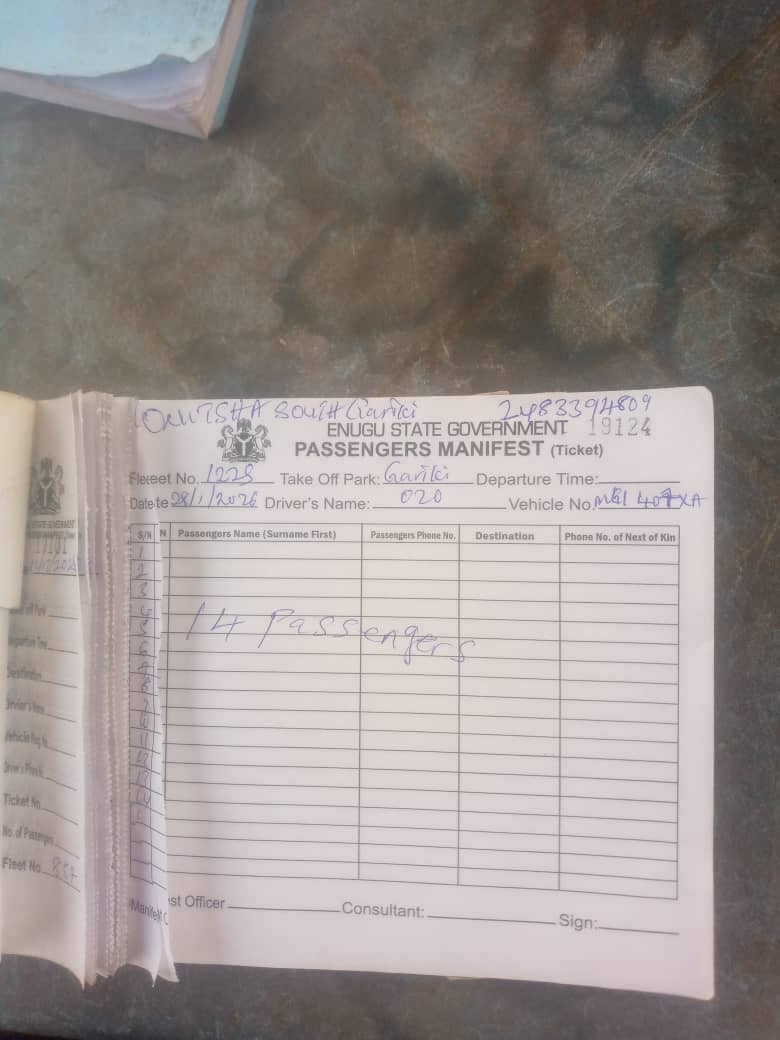 ONITSHA SOUTH Gariki 2483394809
ENUGU STATE GOVERNMENT 19124
PASSENGERS MANIFEST (Ticket)
Fleet No. 1228 Take Off Park: Gariki Departure Time:
Date 28/1/2026 Driver's Name: 020 Vehicle No.
S/N Passengers Name (Surname First) Passengers Phone No. Destination Phone No. of Next of Kin
1
2
3
4
5
6
7
8
9
10
11
12
13
14
14 Passengers
Manifest Officer Consultant: Sign:
STATE GOVERNMENT
Off Park
Departure Time
Destination
Driver's Name
Vehicle Reg. No.
Driver's Phone
Ticket No
No. of Passengers
Fleet No 857